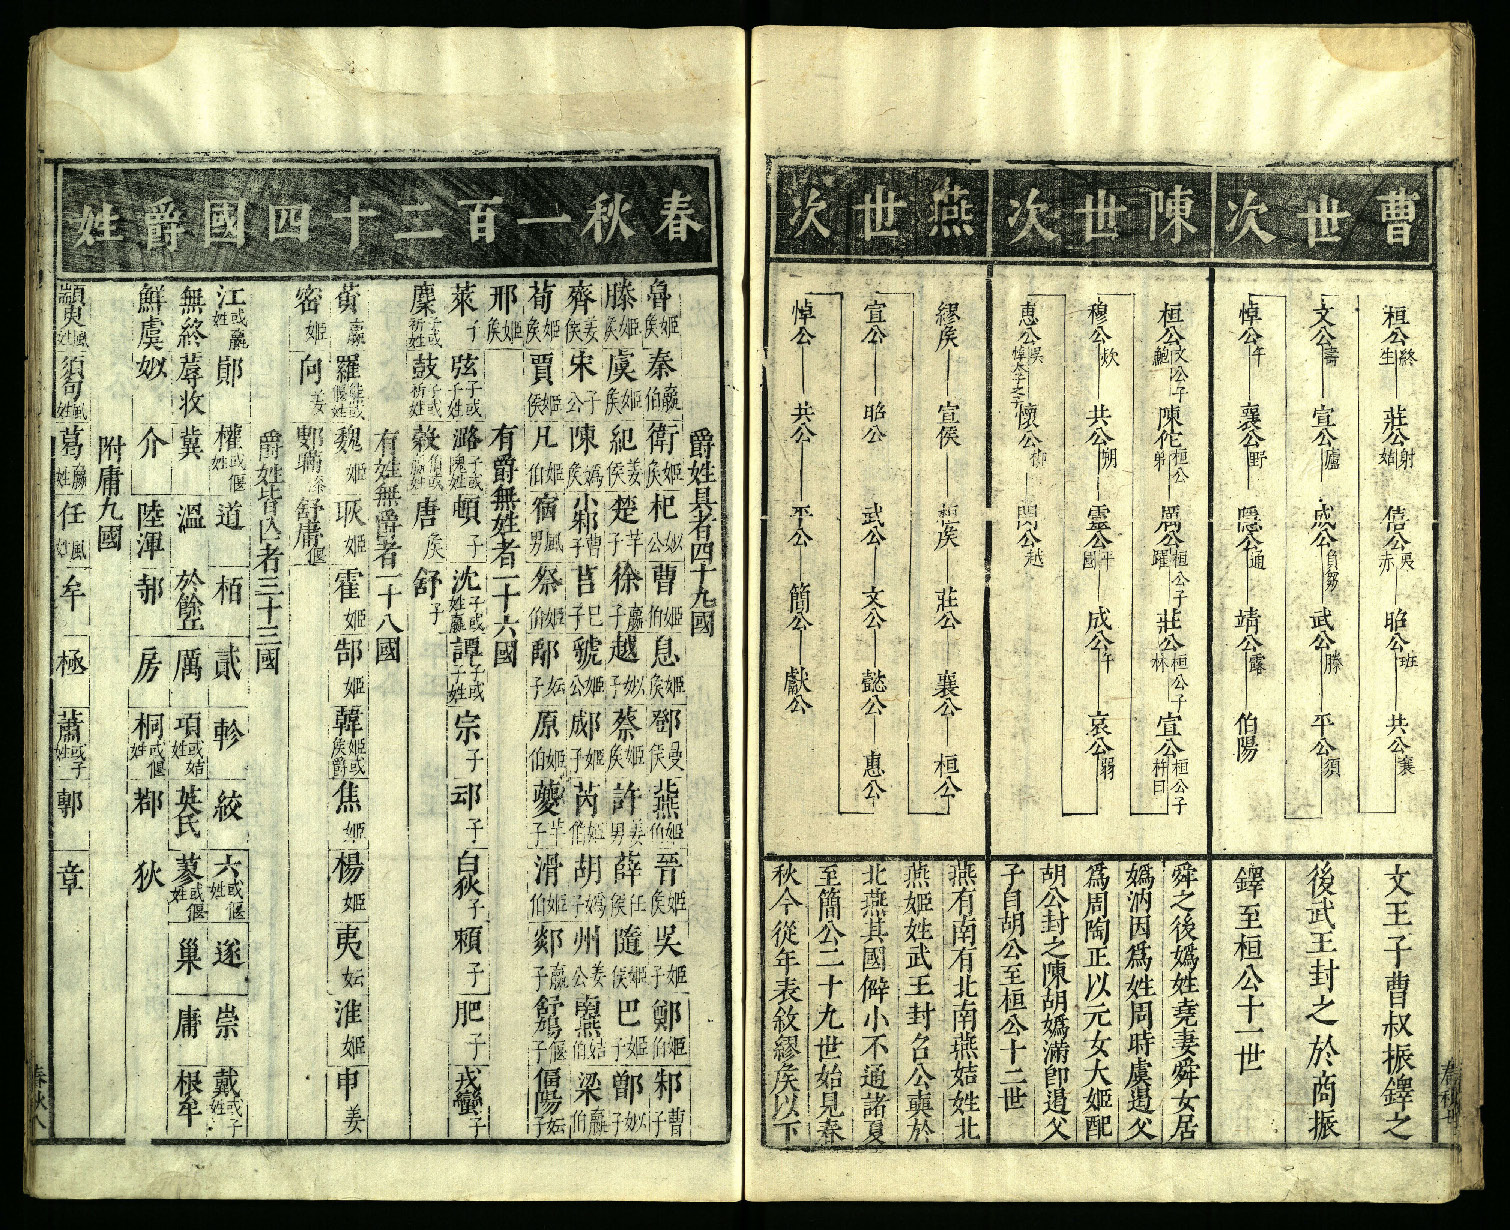 曹世次
桓公終生—莊公射姑—僖公夷赤—昭公班—共公襄
文公壽—宣公廬—成公負芻—武公勝—平公須
悼公午—襄公野—隱公通—靖公露—伯陽
文王子曹叔振鐸之
後武王封之於商振
鐸至桓公十一世
陳世次
桓公文公子鮑—陳佗桓公弟—厲公桓公子躍—莊公桓公子林—宣公桓公子杵臼
穆公款—共公朔—靈公平國—成公午—哀公弱
惠公吳悼太子之子—懷公柳—閔公越
舜之後嬀姓堯妻舜女居
嬀汭因爲姓周時虞遏父
爲周陶正以元女大姬配
胡公封之陳胡嬀滿卽遏父
子自胡公至桓公十二世
燕世次
繆矦—宣侯—桓矦—莊公—襄公—桓公
宣公—昭公—武公—文公—懿公—惠公
悼公—共公—平公—簡公—獻公
燕有南有北南燕姞姓北
燕姬姓武王封召公奭於
北燕其國僻小不通諸夏
至簡公二十九世始見春
秋今從年表敘繆矦以下
春秋一百二十四國爵姓
爵姓具者四十九國
魯姬矦 秦嬴伯 衛姬矦 杞姒公 曹姬伯 息姬矦 鄧曼矦 燕姬伯 晉姬矦 吳姬子 鄭姬伯 邾曹子
滕姬矦 虞姬矦 紀姜矦 楚芊子 徐嬴子 越姒子 蔡姬矦 許姜男 薛任侯 隨姬侯 巴姬子 鄫姒子
齊姜矦 宋子公 陳嬀矦 小邾曹子 莒巳子 虢姬公 郕姬子 芮姬伯 胡嬀子 州姜公 南燕姞伯 梁嬴伯
荀姬矦 賈姬侯 凡姬伯 宿風男 祭姬伯 鄅妘子 原姬伯 夔芊子 滑姬伯 郯嬴子 舒鳩偃子 偪陽妘子
邢姬矦
有爵無姓者一十六國
萊子 弦子或子姓 潞子或隗姓 頓子 沈子或姓嬴 譚子或子姓 宗子 邧子 白狄子 賴子 肥子 戎蠻子
麋子或祈姓 鼓子或祈姓 穀伯或嬴姓 唐矦 舒子
有姓無爵者一十八國
黃嬴 羅熊或偃姓 魏姬 耿姬 霍姬 郜姬 韓姬或矦爵 焦姬 楊姬 夷妘 淮姬 申姜
密姬 向姜 鄋瞞漆 舒庸偃
爵姓皆亾者三十三國
江或嬴姓 鄖 權或偃姓 道 栢 貳 軫 絞 六或偃姓 遂 崇 戴或子姓
無終 蓐收 冀 溫 於餘丘 厲 項或姞姓 英氏 蓼或偃姓 巢 庸 根牟
鮮虞姒 介 陸渾 郝 房 桐或偃姓 鄀 狄
附庸九國
顓臾風姓 須句風姓 葛嬴姓 任風姓 牟 極 蕭或子姓 郭 章
春秋八